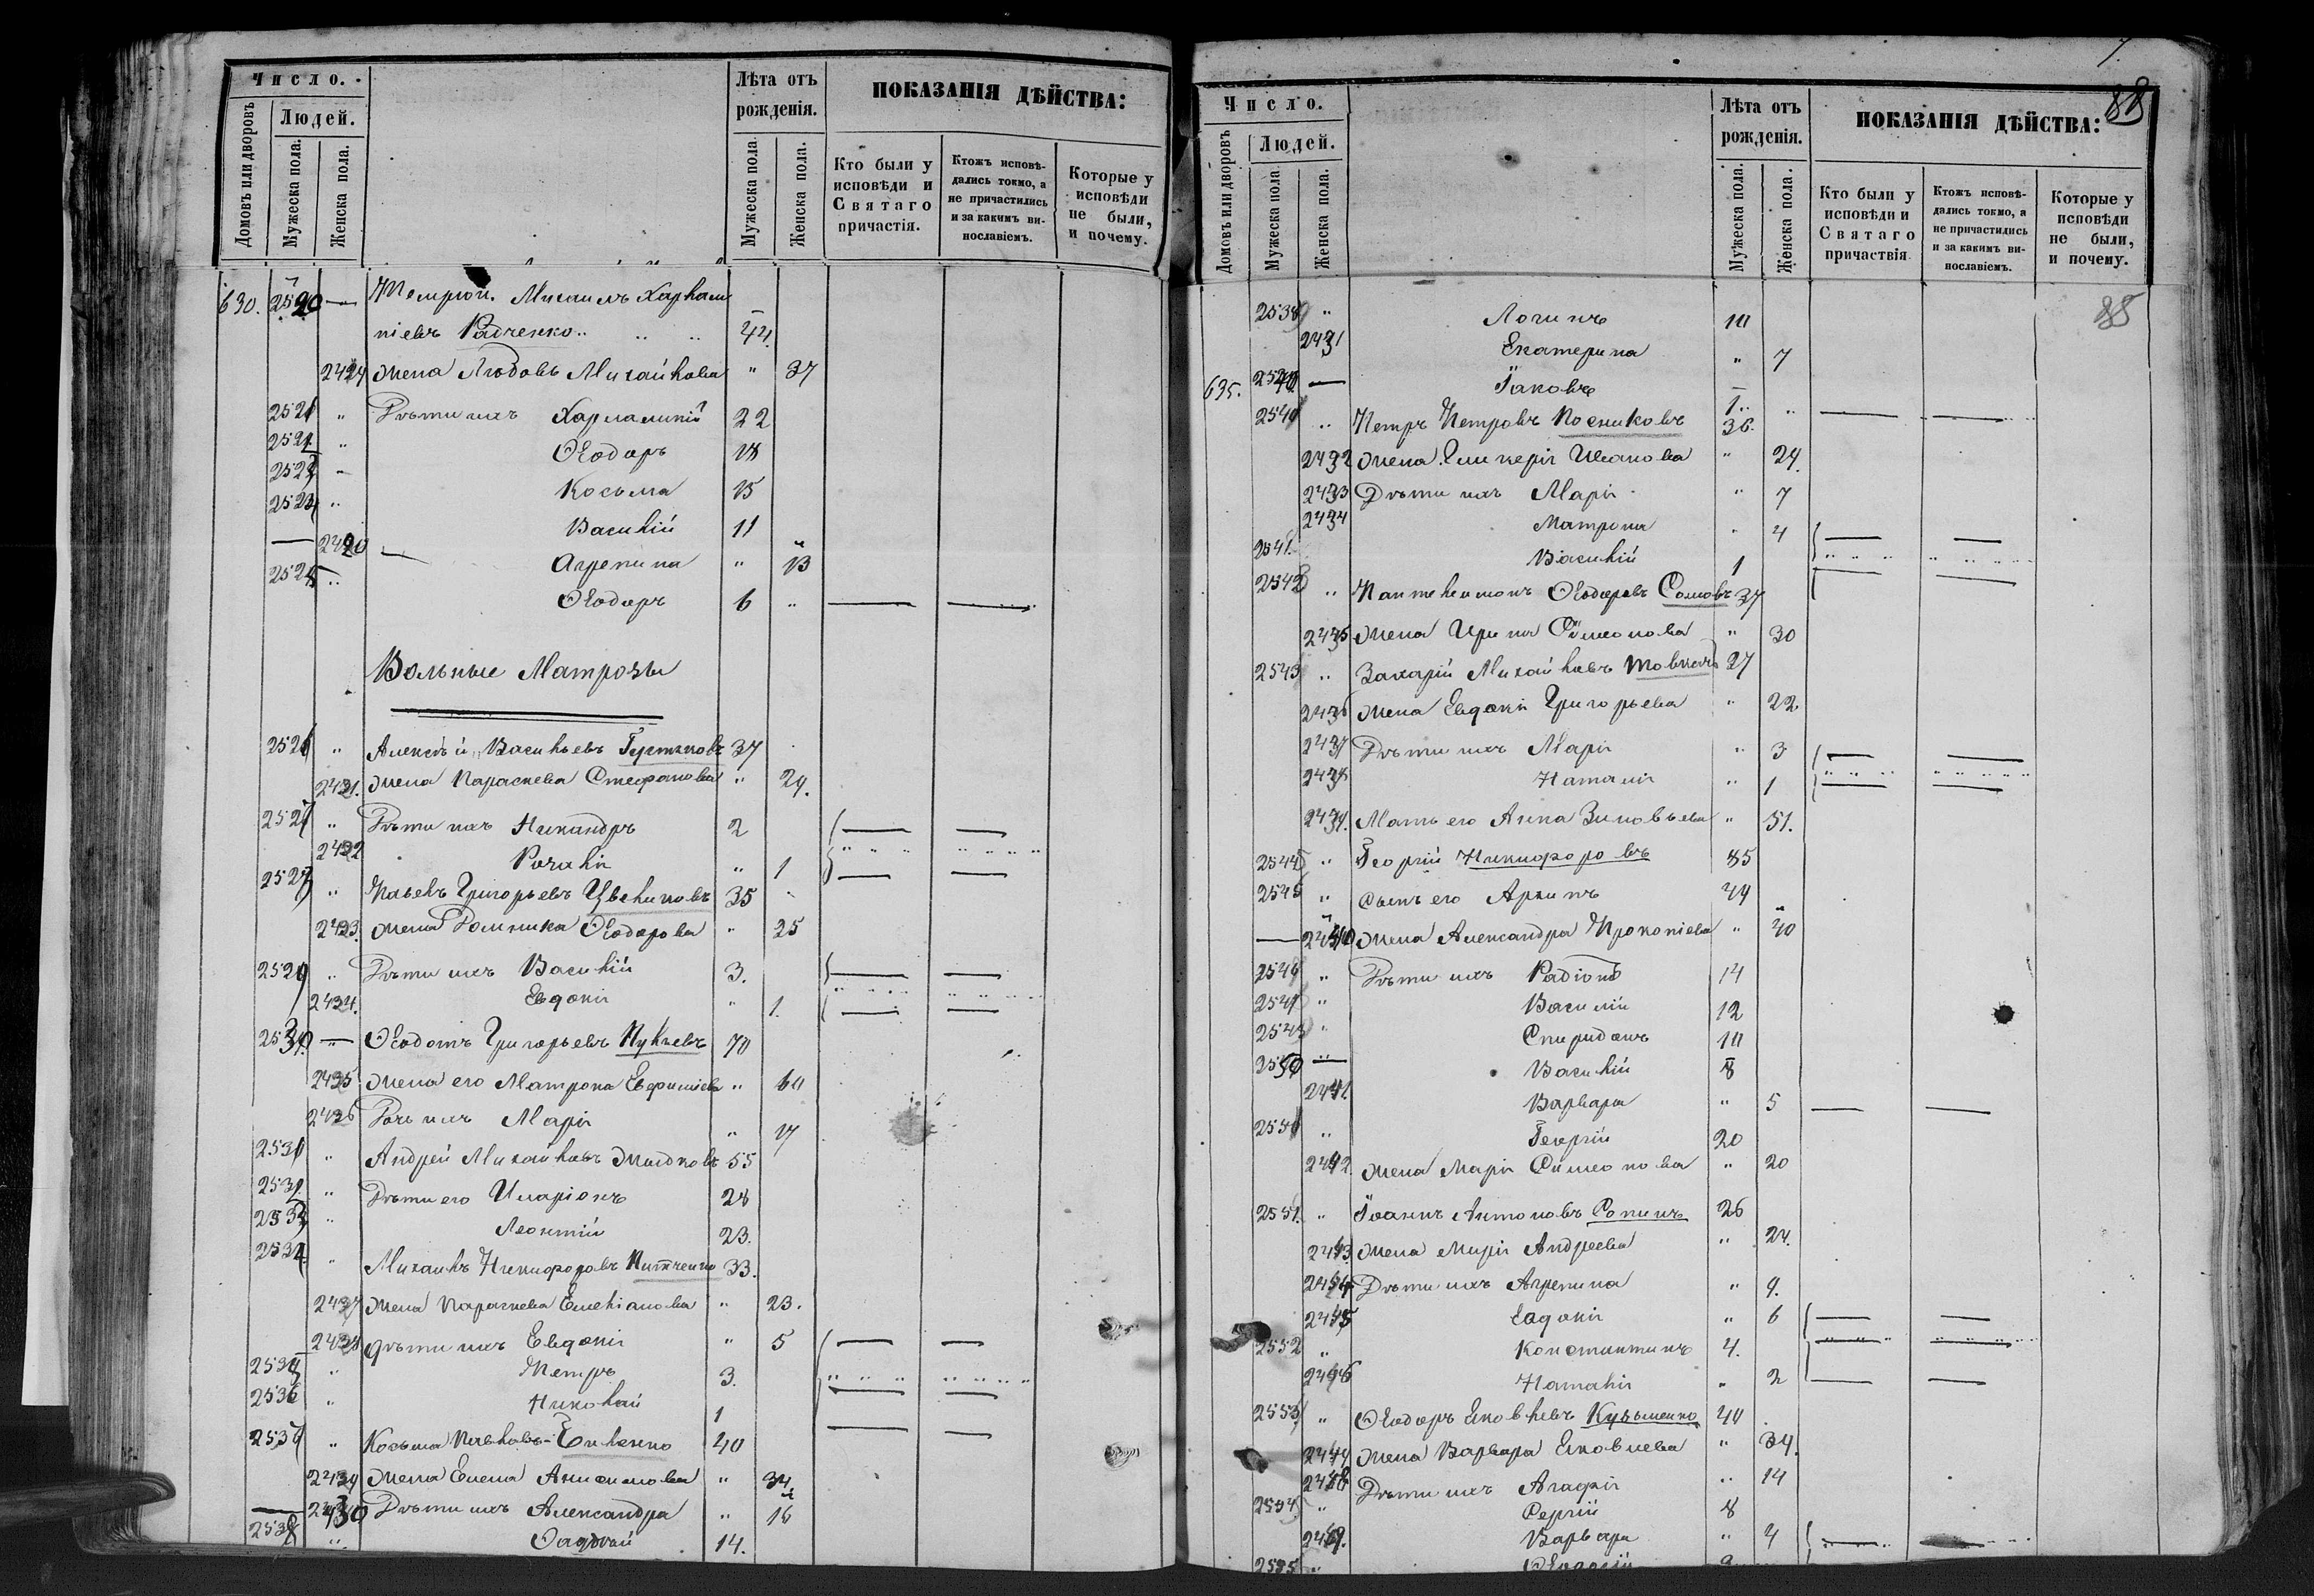 Число.
Домовъ или дворовъ
Людей.
Мужеска пола.
Женска пола.
Лѣта отъ
рожденія.
Мужеска пола
Женска пола.
ПОКАЗАНІЯ ДѢЙСТВА:
Кто были у
исповѣди и
Святаго
причастія.
Ктожъ исповѣ-
дались токмо, а
не причастились
и за какимъ ви-
нословіемъ.
Которые у
исповѣди
не были,
и почему.
630. 2520 — Михаилъ Харлам
піевъ Радченко 44
2424 жена Любовь Михайлова " 37
2521 " Дѣти ихъ Харлампій 22
" Ѳеодоръ 18
Косьма 15
Василій 11
— 2420 — Агрепина " 13
Ѳеодоръ 6 "
Вольные Матрозы
2526 " Алексѣй Васильевъ 37
2421. жена Параскева Стефанова " 29.
2527 " Дѣти ихъ Никандръ 2
2422 " 1
" Григорьевъ Цвѣтковъ 35
2423. жена Домника Ѳеодорова " 25
2529 " Дѣти ихъ Василій 3.
2424. Евдокія " 1.
— Ѳеодотъ Григорьевъ 70
2425 жена его Матрона Евфиміева " 60
2426 Дочь ихъ Марія " 17
" Андрей Михайловъ 55
" Дѣти его Иларіонъ 28
" Леонтій 23.
Михаилъ Никифоровъ 33.
2427 жена Параскева Емеліанова " 23.
2428 дѣти ихъ Евдокія " 5
" Петръ 3.
2536 " Николай 1
" Косьма Павловъ 40
2429 жена Елена " 34
— 2430 Дѣти ихъ Александра " 16
" 14.
7.
88
Число.
Домовъ или дворовъ
Людей.
Мужеска пола
Женска пола.
Лѣта отъ
рожденія.
Мужеска пола.
Женска пола.
ПОКАЗАНІЯ ДѢЙСТВА:
Кто были у
исповѣди и
Святаго
причаствія
Ктожъ исповѣ-
дались токмо, а
не причастились
и за какимъ ви-
нословіемъ.
Которые у
исповѣди
не были,
и почему.
85
" Логинъ 10
2431 Екатерина " 7
635. — Іаковъ 1 "
2540 " Петръ Петровъ Посниковъ 36.
2432 жена Гликерія Иванова " 24.
2433 Дѣти ихъ Марія " 7
2434 Матрона " 4
2541. Василій 1
2542 " Пантелеимонъ Ѳеодоровъ Сомовъ 37
2435 жена Ирина Симеонова " 30
2543 " Захарій Михайловъ 27
2436 жена Евдокія Григорьева " 22
2437 Дѣти ихъ Марія " 3
2438 Наталія " 1
2439. Мать его Анна Зиновьева " 51.
2544 " Георгій Никифоровъ 85
2545 " сынъ его Архипъ 49
— 2440 жена Александра Прокопіева " 40
2546 " Дѣти ихъ Радіонъ 14
2547 " Василій 12
2548 " Спиридонъ 10
— Василій 8
2441 Варвара " 5
2550 " Георгій 20
2442. жена Марія Симеонова " 20
2551. " Іоаннъ Антоновъ 26
2443. жена Марія Андреева " 24.
2444 Дѣти ихъ Агрепина " 9.
2445 Евдокія " 6
2552 " Константинъ 4.
2446 Наталія " 2
2553 " Ѳеодоръ Яковлевъ Кузьменко 40
жена Варвара Яковлева " 34.
2448 Дѣти ихъ Агафія " 14
2554 " Сергій 8
2449. Варвара " 4
2555 "